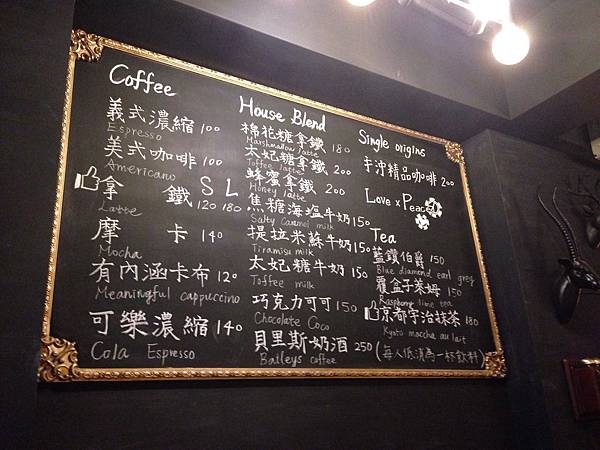 Coffee
義式濃縮 100
Espresso
美式咖啡 100
Americano
拿鐵 S L
Latte 120 180
摩卡 140
Mocha
有內涵卡布 120
Meaningful cappuccino
可樂濃縮 140
Cola Espresso
House Blend
棉花糖拿鐵 180
Marshmallow latte
太妃糖拿鐵 200
Toffee latte
蜂蜜拿鐵 200
Honey latte
焦糖海塩牛奶 150
Salty Caramel milk
提拉米蘇牛奶 150
Tiramisu milk
太妃糖牛奶 150
Toffee milk
巧克力可可 150
Chocolate Coco
貝里斯奶酒 250
Baileys coffee
Single origins
手沖精品咖啡 200
Love x Peace
Tea
藍鑽伯爵 150
Blue diamond earl grey
覆盆子萊姆 150
Raspberry lime tea
京都宇治抹茶 180
Kyoto maccha au lait
(每人低消為一杯飲料)